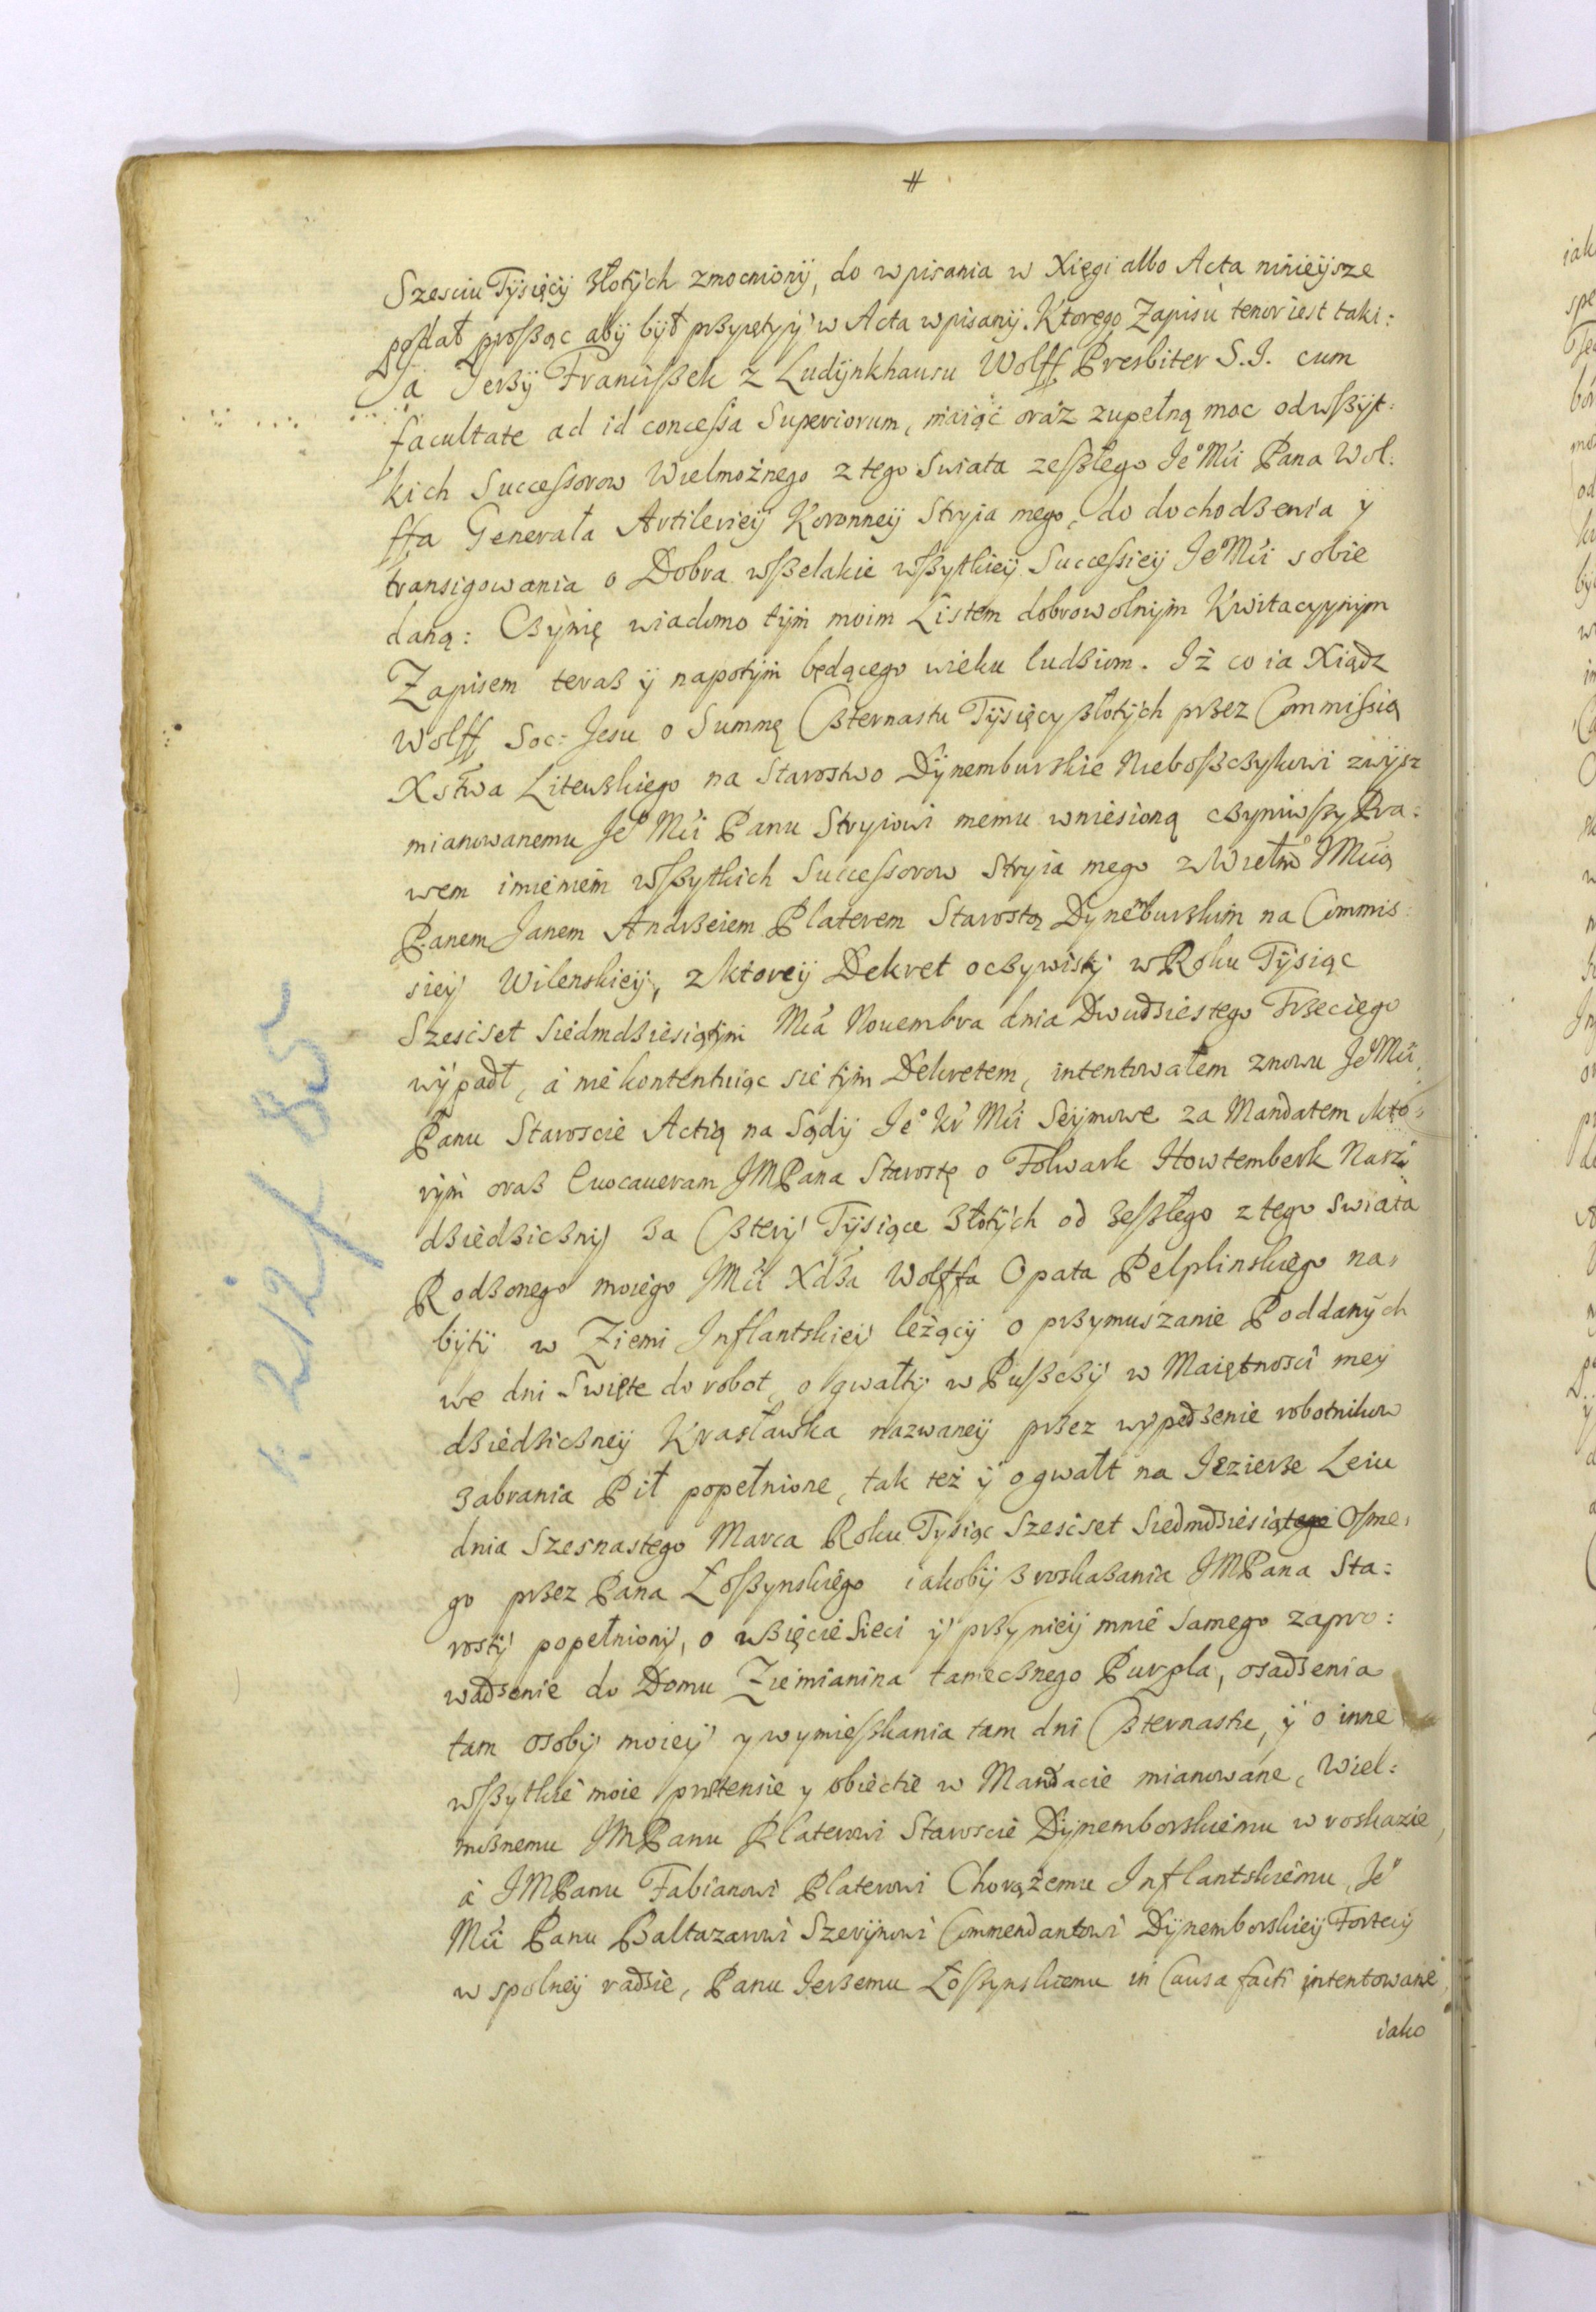 #
Szesciu Tysięcÿ złotÿch zmocnionÿ, do wpisania w Xięgi albo Acta ninieÿsze
podał proßąc abÿ bÿł przyiętÿ ÿ w Acta wpisanÿ. Ktorego Zapisu tenor iest taki:
Ja Jerzÿ Franciszek z Ludÿnkhausu Wolff Presbiter S.J. cum
facultate ad id concessa Superiorum, maiąc oraz zupełną moc od wszÿt:
kich Successorow Wielmożnego z tego swiata zeszłego Jeº Mći Pana Wol:
ffa Generała Artilerieÿ Koronneÿ Stryia mego, do dochodzenia y
transigowania o Dobra wszelakie wszytkieÿ Successieÿ Je Mći sobie
daną: Czÿnię wiadomo tÿm moim Listem dobrowolnÿm Kwitacyÿnÿm
Zapisem teraz ÿ napotÿm będącego wieku ludziom. Iż co ia Xiądz
Wolff Soc: Jesu o Summę Czternastu Tÿsięcy złotÿch przez Commissią
Xstwa Litewskiego na Starostwo Dÿnemburskie Nieboszczykowi zwÿsz
mianowanemu Jeº Mći Panu Stryiowi memu wniesioną czyniwszy Pra:
wem imieniem wszytkich Successorow Stryia mego z Wielmº JMćią
Panem Janem Andrzeiem Platerem Starostą Dynemburskim na Commis:
sieÿ Wilenskieÿ, z ktoreÿ Dekret oczywistÿ w Roku Tÿsiąc
Szesćset Siedmdziesiątÿm Mca Nouembra dnia Dwudziestego Trzeciego
wÿpadł, a nie kontentuiąc sie tÿm Dekretem, intentowałem znowu Jeº Mći
Panu Staroscie Actią na Sądÿ Jeº Kr Mći Seÿmowe za Mandatem kto:
rÿm oraz Euocaueram JMPana Starostę o Folwark Howtemberk Nasz
dziedzicznÿ za Czterÿ Tÿsiące złotÿch od zeszłego z tego swiata
Rodzonego moiego JMći Xdza Wolffa Opata Pelplinskiego na:
bÿtÿ w Ziemi Inflantskieÿ leżącÿ o przymuszanie Poddanÿch
we dni Swięte do robot, o gwałtÿ w Puszczÿ w Maiętnosci mey
dziedziczneÿ Krasławka nazwaneÿ przez wypędzenie robotnikow
zabrania Pił popełnione, tak też ÿ o gwałt na Jezierze Leiu
dnia Szesnastego Marca Roku Tysiąc Szesćset Siedmdziesiątego Osme:
go przez Pana Łoszynskiego iakobÿ z roskazania JMPana Sta:
rostÿ popełnionÿ, o wzięcie Sieci ÿ przynieÿ mnie samego zapro:
wadzenie do Domu Ziemianina tamecznego Purpla, osadzenia
tam osobÿ moieÿ y wymieszkania tam dni Czternastu, ÿ o inne
wszytkie moie prætensie y obiectie w Mandacie mianowane, Wiel:
możnemu JMPanu Platerowi Staroscie Dÿnemborskiemu w roskazie,
a JMPanu Fabianowi Platerowi Chorążemu Inflantskiemu, Jeº
Mći Panu Baltazarowi Szerÿnowi Commendantowi Dÿnemborskieÿ Fortecÿ
w spolneÿ radzie, Panu Jerzemu Łoszynskiemu in Causa facti intentowane,
iako